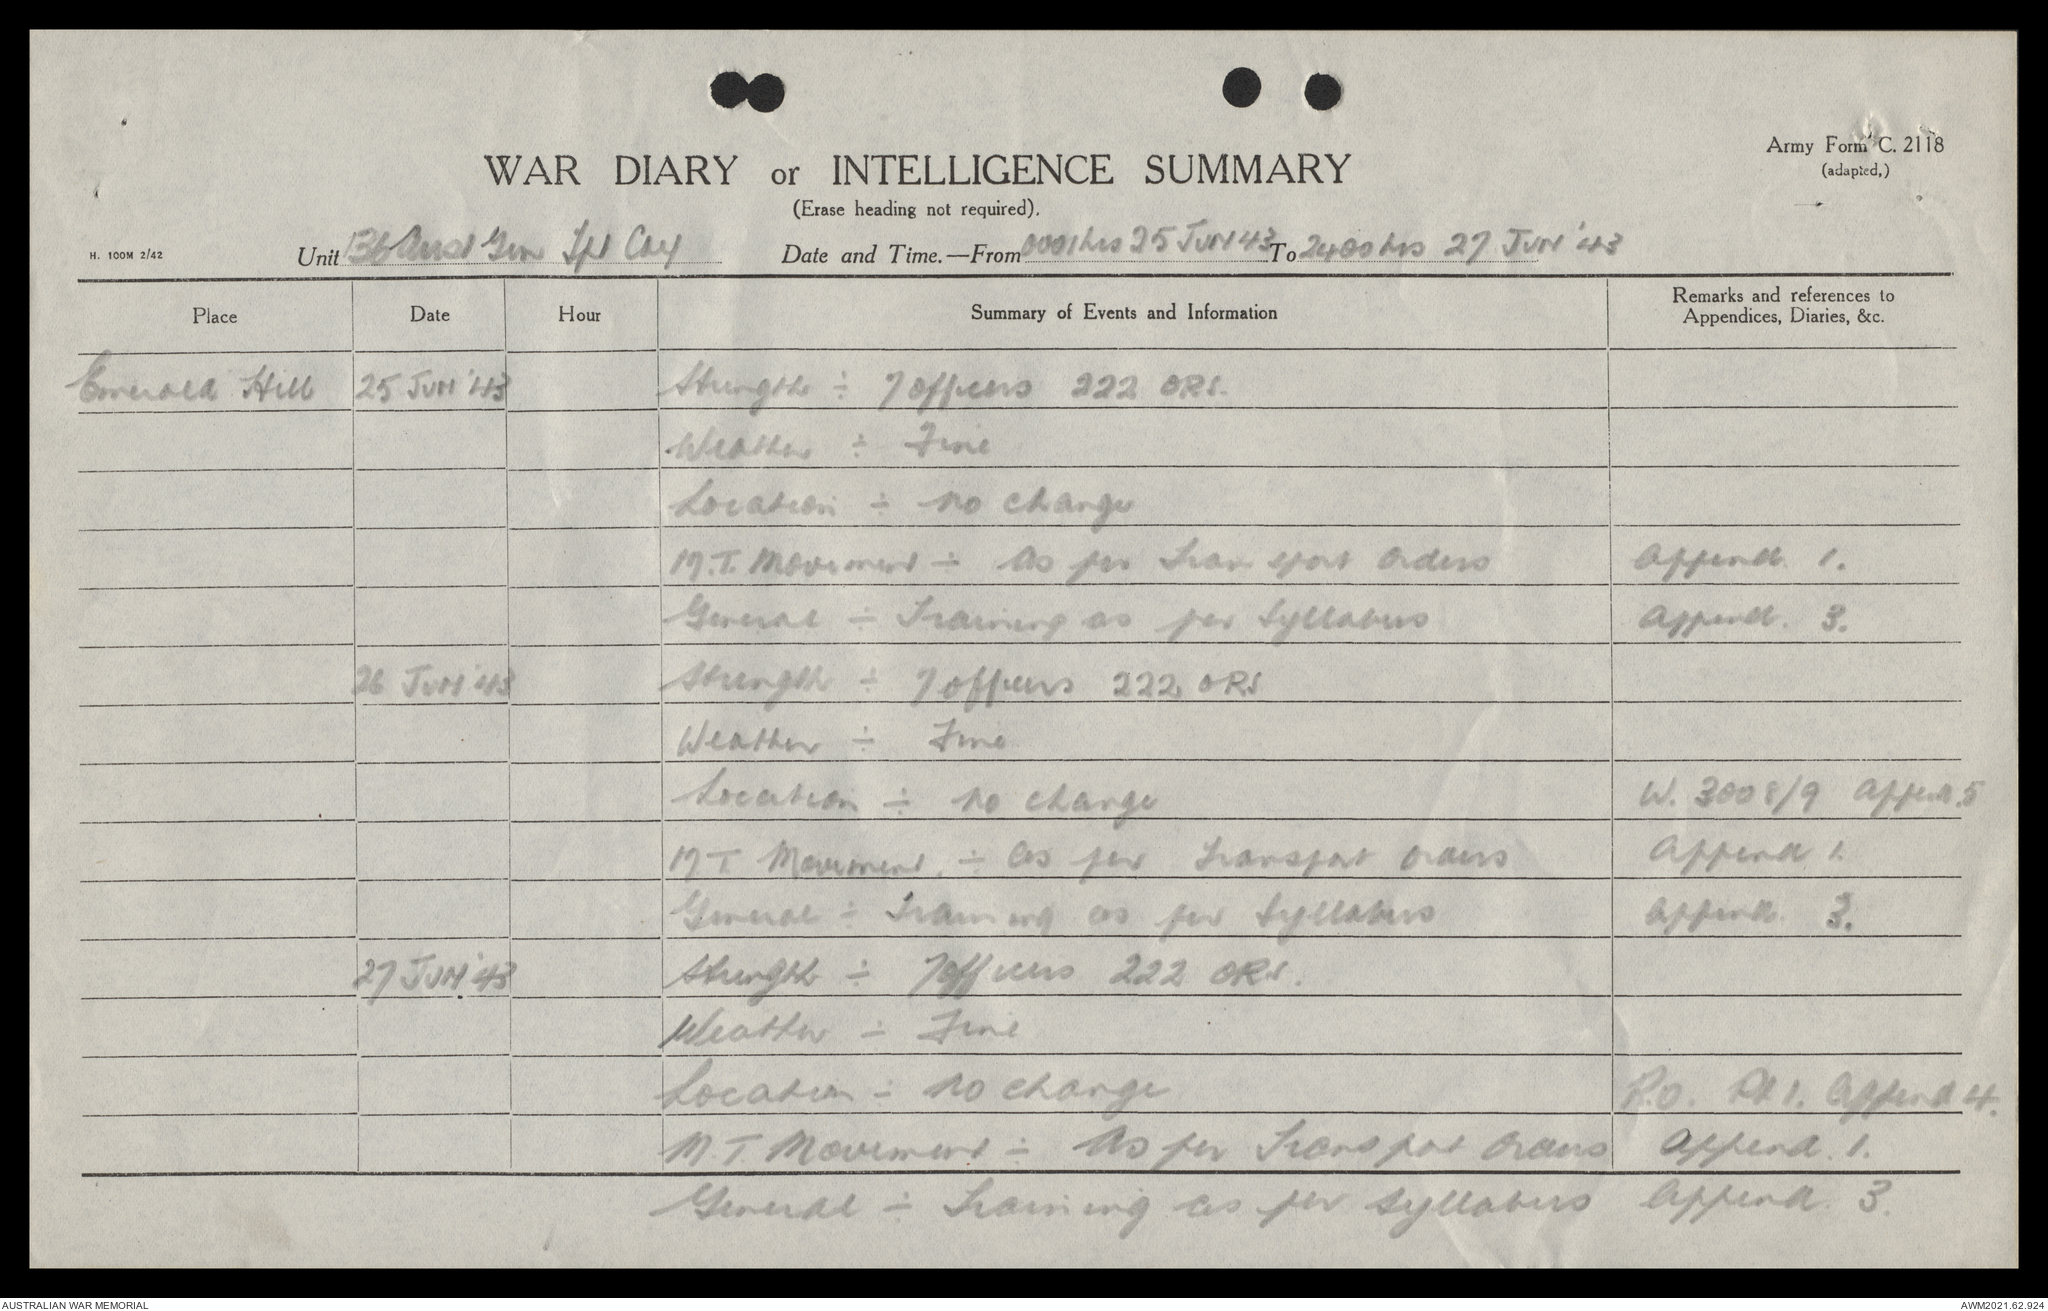 Army Form C. 2118
(adapted,)
WAR DIARY or INTELLIGENCE SUMMARY
(Erase heading not required).
H. 100M 2/42
Unit 136 Aust Gen Tpt Coy Date and Time.—From 0001hrs 25 JUN 43 To 2400hrs 27 JUN '43
Place Date Hour Summary of Events and Information Remarks and references to
Appendices, Diaries, &c.
Emerald Hill 25 JUN '43 Strength ÷ 7 officers 222 ORS.
Weather ÷ Fine
Location ÷ no change
M.T. Movement ÷ As per Transport Orders Append. 1.
General ÷ Training as per Syllabus Append. 3.
26 JUN '43 Strength ÷ 7 officers 222 ORS
Weather ÷ Fine
Location ÷ no change W. 3008/9 Append. 5
M T Movement. ÷ As per Transport Orders Append 1.
General ÷ Training as per Syllabus Append. 3.
27 JUN '43 Strength ÷ 7 officers 222 ORS.
Weather ÷ Fine
Location ÷ no change R.O. Pt 1. Append 4.
M.T. Movement ÷ As per Transport Orders Append. 1.
General ÷ Training as per Syllabus Append. 3.
AUSTRALIAN WAR MEMORIAL
AWM2021.62.924